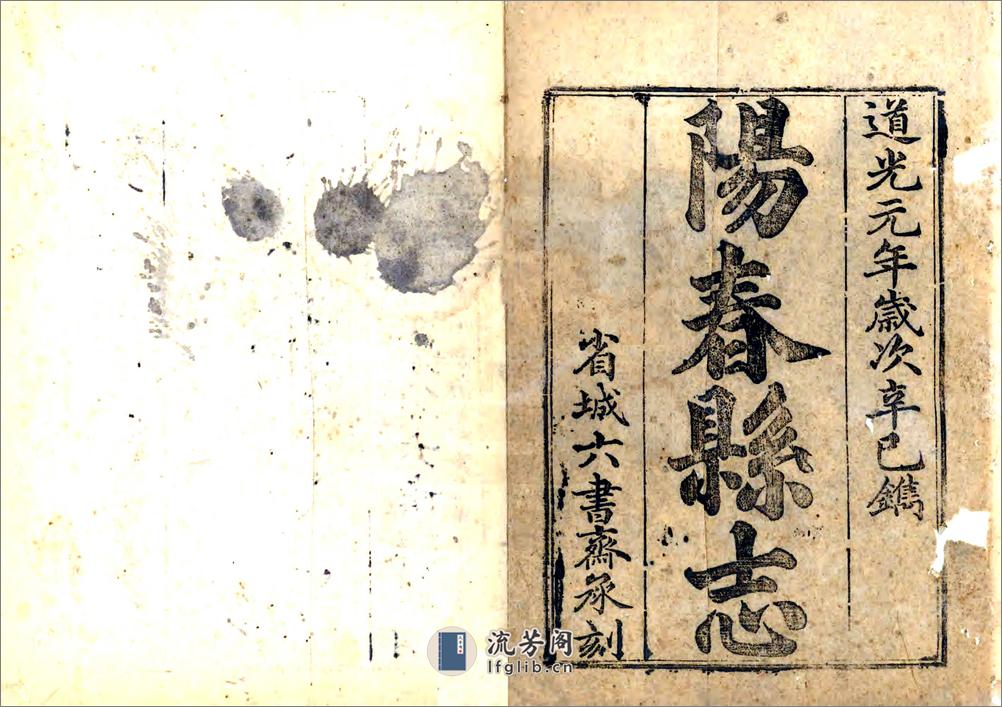 道光元年歲次辛巳鐫
陽春縣志
省城六書齋承刻
流芳阁
lfglib.cn